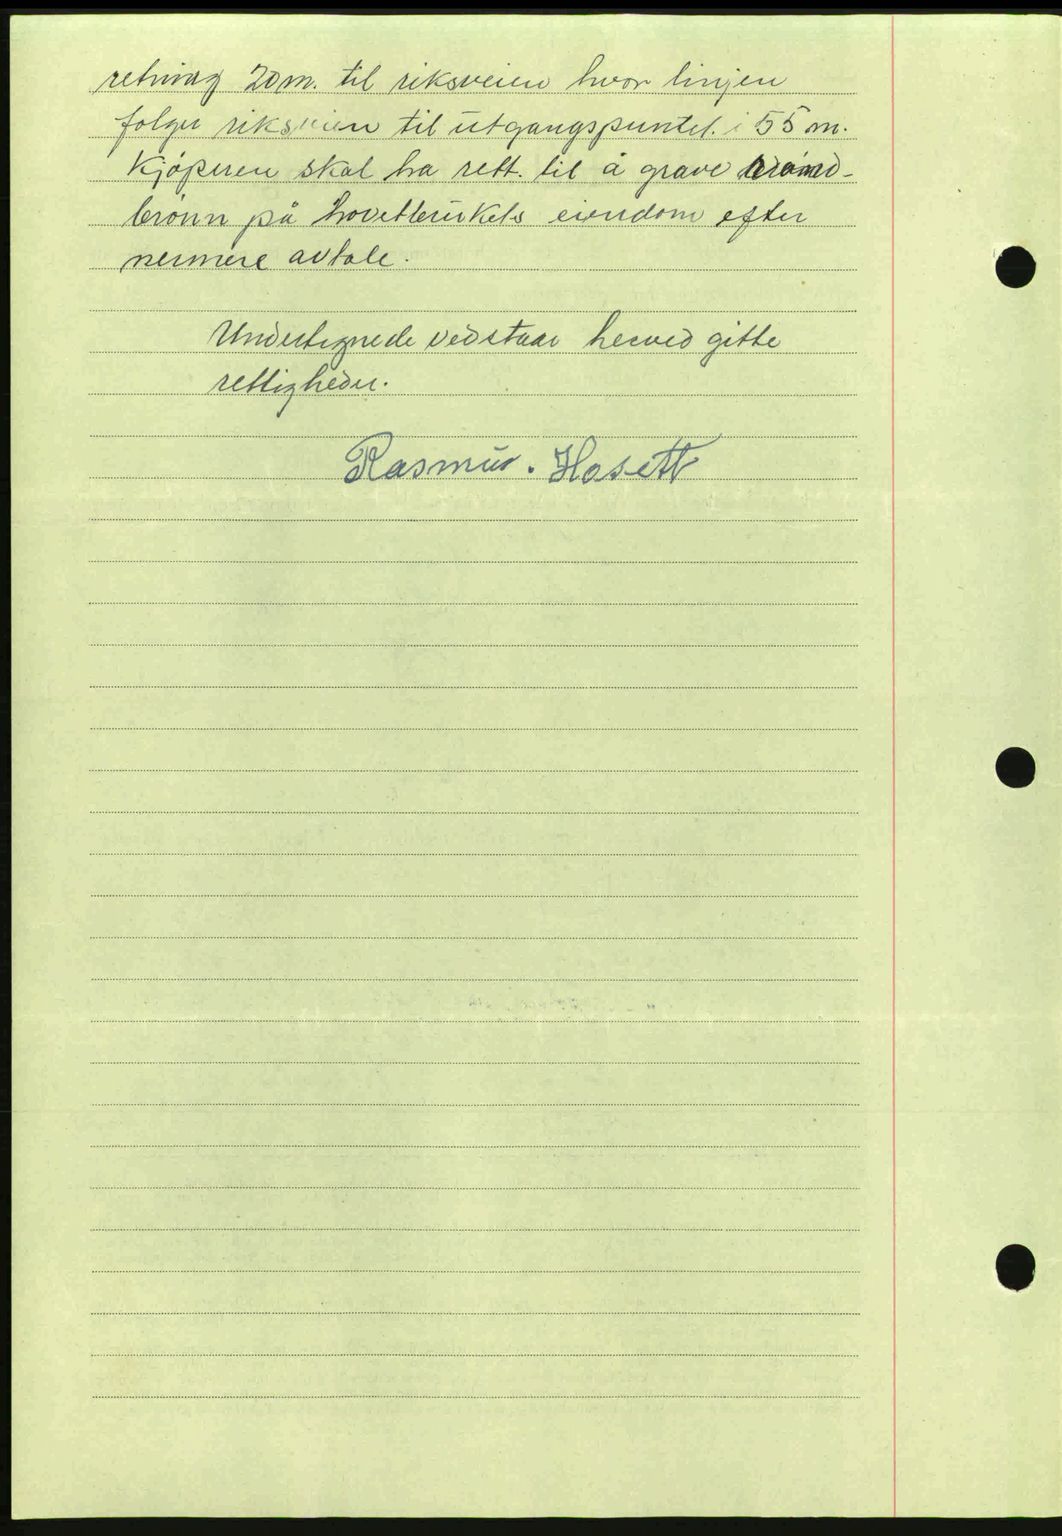 retning 20 m. til riksveien hvor linjen
følger riksveien til utgangspuntet. i 55 m.
Kjöperen skal ha rett. til å grave
brönn på hovetbrukets eiendom efter
nermere avtale.
Undertegnede vedstaar herved gitte
rettigheder.
Rasmus. Hosett